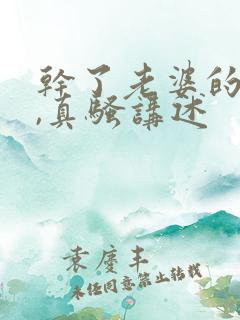 幹了老婆的
,真騷講述
袁慶丰
未经同意禁止转载